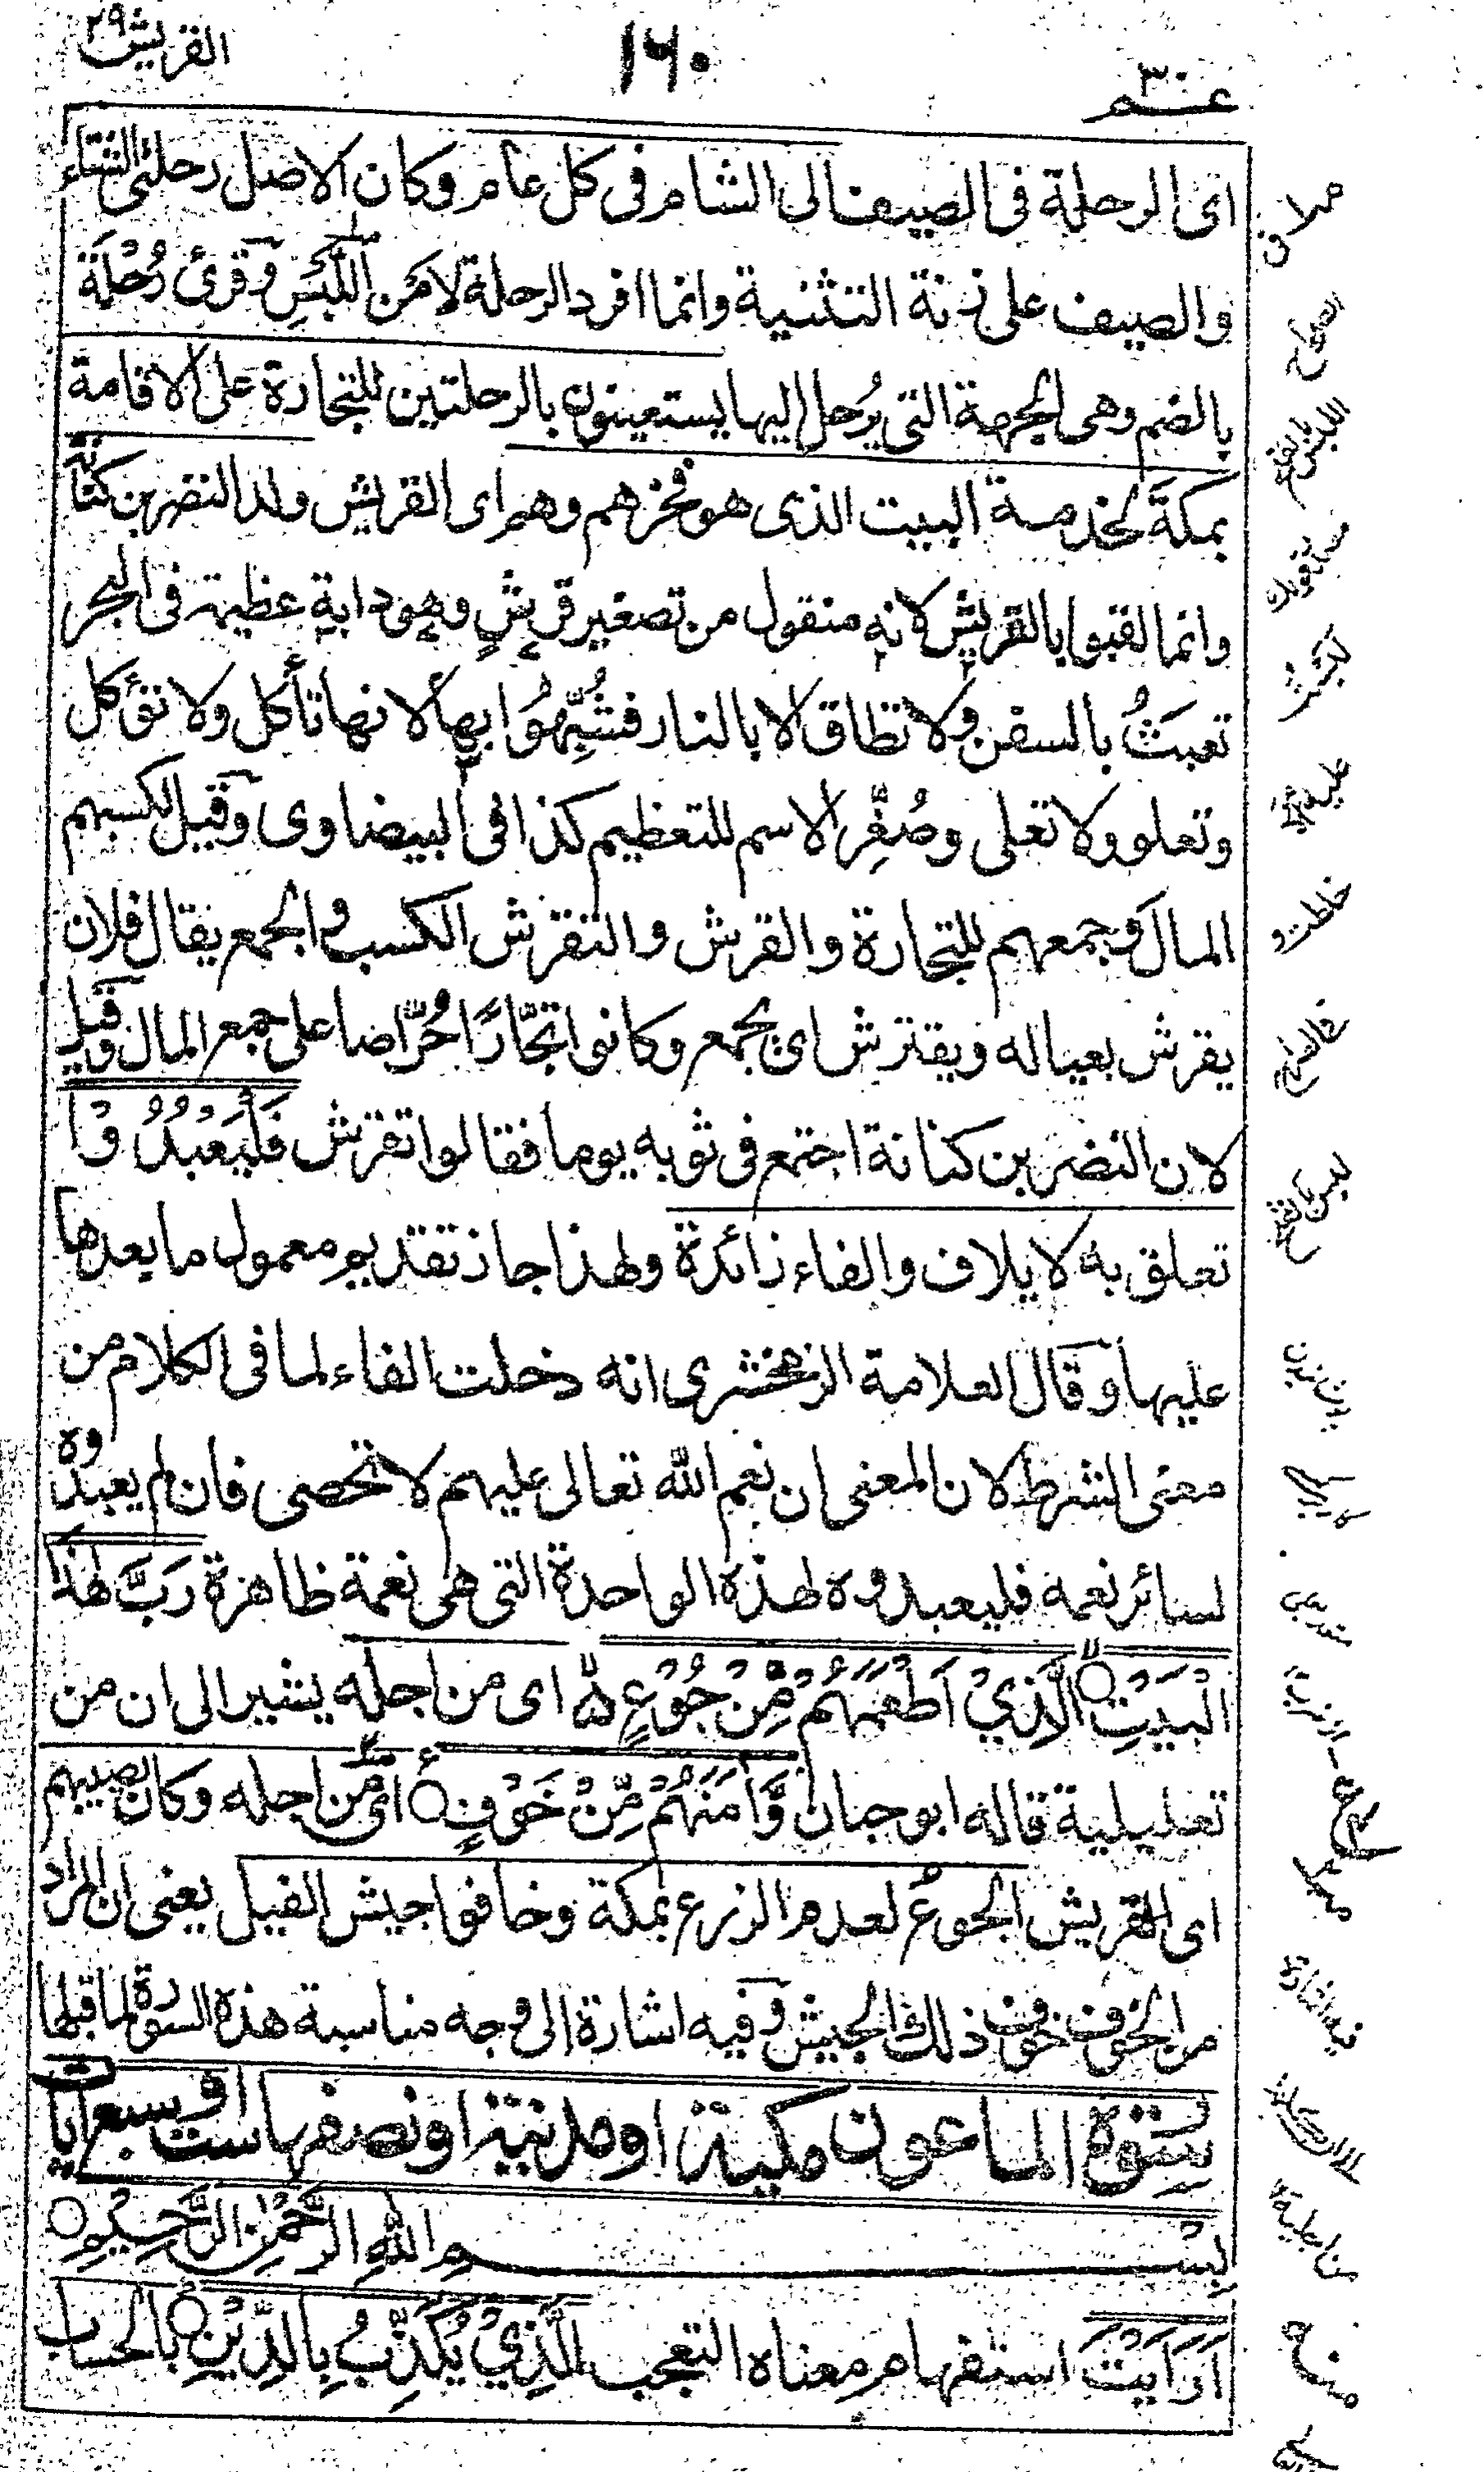 عـم ٣٠
١٦٠
القريش ٢٩
اى الرحلة فى الصيف الى الشام فى كل عام وكان الاصل رحلتى الشتاء
والصيف على زنة التثنية وانما افرد الرحلة لامن اللبس وقرئ رُحْلَة
بالضم وهى الجهة التى يُرحل اليها يستعينون بالرحلتين للتجارة على الاقامة
بمكة لخدمة البيت الذى هو فخرهم وهم اى القريش ولد النضر بن كنانة
وانما لقبوا بالقريش لانه منقول من تصغير قرشٍ وهو دابة عظيمة فى البحر
تعبثُ بالسفن ولا تطاق الا بالنار فشُبِّهُوا بها لانها تأكل ولا تؤكل
وتعلو ولا تعلى وصُغِّر الاسم للتعظيم كذا فى البيضاوى وقيل لكسبهم
المال وجمعهم للتجارة والقرش والتقرش الكسب والجمع يقال فلان
يقرش بعياله ويقترش اى يجمع وكانوا تجّارًا حُرّاضا على جمع المال وقيل
لان النضر بن كنانة اجتمع فى ثوبه يوما فقالوا تقرش فَلْيَعْبُدُوْا
تعلق به لايلاف والفاء زائدة ولهذا جاز تقديم معمول ما بعدها
عليها وقال العلامة الزمخشرى انه دخلت الفاء لما فى الكلام من
معنى الشرط لان المعنى ان نعم الله تعالى عليهم لا تحصى فان لم يعبدوه
لسائر نعمه فليعبدوه لهذه الواحدة التى هى نعمة ظاهرة رَبَّ هٰذَا
الْبَيْتِ الَّذِيْ اَطْعَمَهُمْ مِّنْ جُوْعٍ اى من اجله يشير الى ان من
تعليلية قاله ابو حبان وَّاٰمَنَهُمْ مِّنْ خَوْفٍ اى من اجله وكان يصيبهم
اى القريش الجوعُ لعدم الزرع بمكة وخافوا جيش الفيل يعنى ان المراد
من الخوف خوف ذلك الجيش وفيه اشارة الى وجه مناسبة هذه السورة لما قبلها
سورة الماعون مكية او مدنية او نصفها ست او سبع ايات
بِسْمِ اللهِ الرَّحْمٰنِ الرَّحِيْمِ
اَرَاَيْتَ استفهام معناه التعجب الَّذِيْ يُكَذِّبُ بِالدِّيْنِ بالحساب